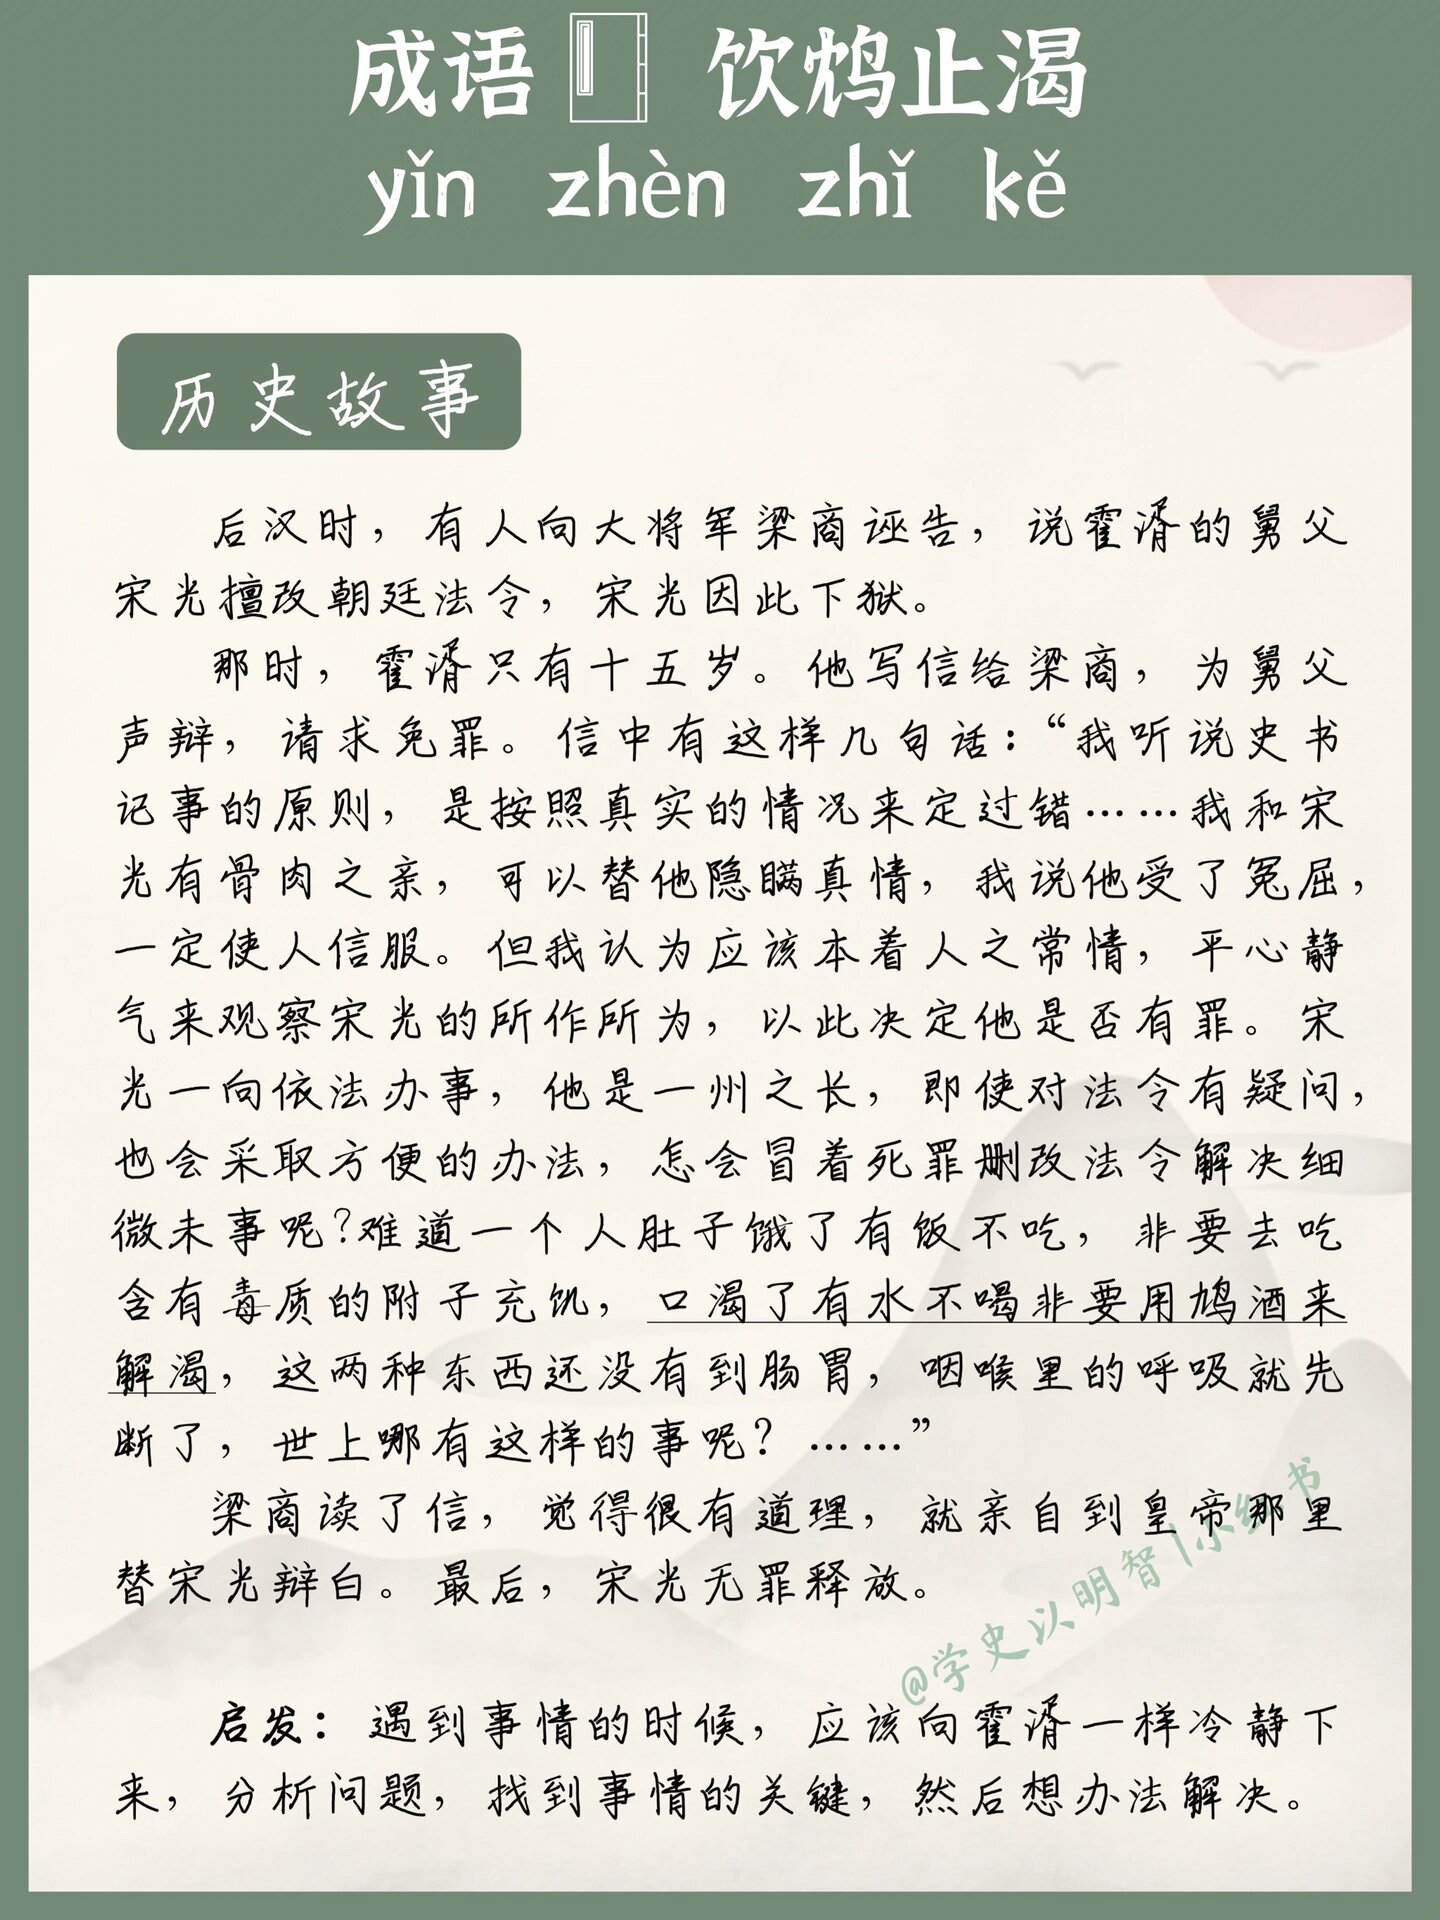 成语 饮鸩止渴
yǐn zhèn zhǐ kě
历史故事
后汉时，有人向大将军梁商诬告，说霍谞的舅父
宋光擅改朝廷法令，宋光因此下狱。
那时，霍谞只有十五岁。他写信给梁商，为舅父
声辩，请求免罪。信中有这样几句话：“我听说史书
记事的原则，是按照真实的情况来定过错……我和宋
光有骨肉之亲，可以替他隐瞒真情，我说他受了冤屈，
一定使人信服。但我认为应该本着人之常情，平心静
气来观察宋光的所作所为，以此决定他是否有罪。宋
光一向依法办事，他是一州之长，即使对法令有疑问，
也会采取方便的办法，怎会冒着死罪删改法令解决细
微末事呢？难道一个人肚子饿了有饭不吃，非要去吃
含有毒质的附子充饥，口渴了有水不喝非要用鸩酒来
解渴，这两种东西还没有到肠胃，咽喉里的呼吸就先
断了，世上哪有这样的事呢？……”
梁商读了信，觉得很有道理，就亲自到皇帝那里
替宋光辩白。最后，宋光无罪释放。
@学史以明智|小红书
启发：遇到事情的时候，应该向霍谞一样冷静下
来，分析问题，找到事情的关键，然后想办法解决。